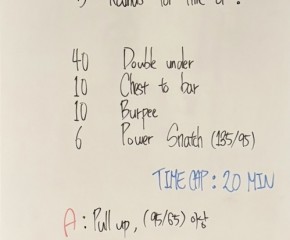 Rounds for Time of :
40 Double under
10 Chest to bar
10 Burpee
6 Power Snatch (135/95)
TIME CAP : 20 MIN
A : Pull up, (95/65) 이상